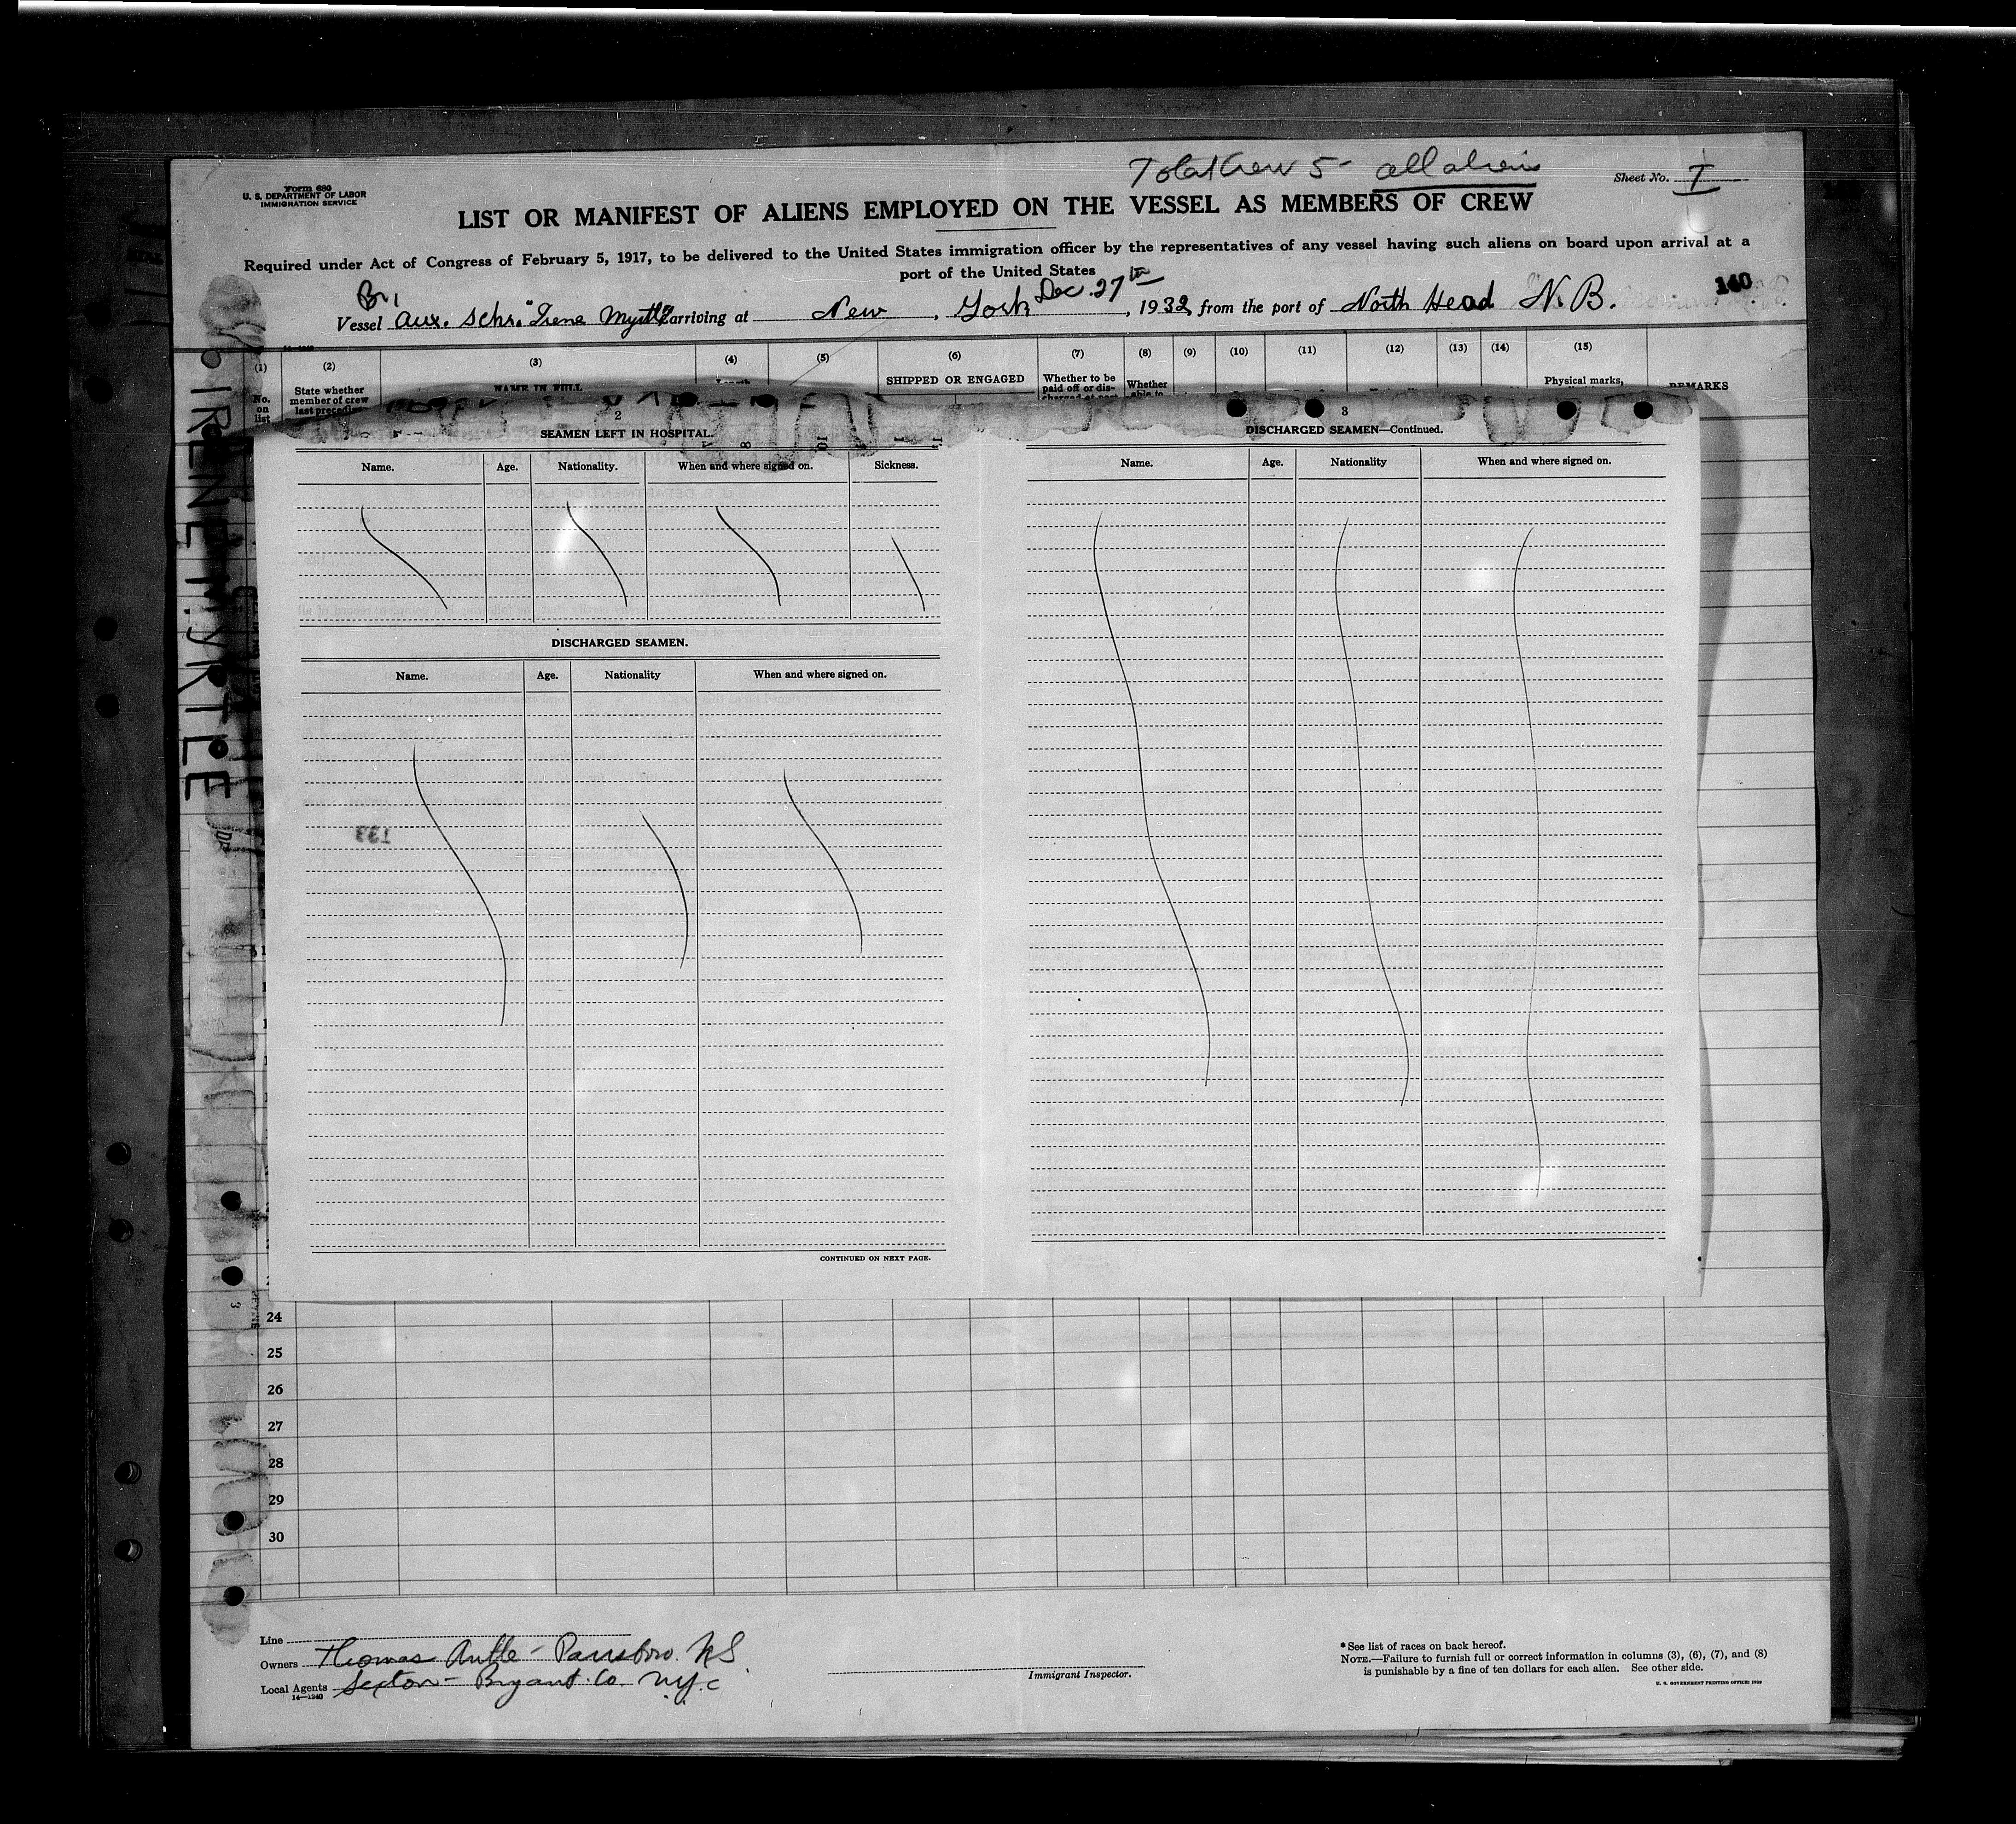 Total Crew 5- all aliens
Form 680
U. S. DEPARTMENT OF LABOR
IMMIGRATION SERVICE
Sheet No. I
LIST OR MANIFEST OF ALIENS EMPLOYED ON THE VESSEL AS MEMBERS OF CREW
Required under Act of Congress of February 5, 1917, to be delivered to the United States immigration officer by the representatives of any vessel having such aliens on board upon arrival at a
port of the United States
140
Br.
Vessel Aux. Schr. "Irene Myrtle" arriving at New York Dec. 27th, 1932, from the port of North Head N.B.
(1) (2) (3) (4) (5) (6) (7) (8) (9) (10) (11) (12) (13) (14) (15)
No. on list
State whether member of crew last preceding
NAME IN FULL
SHIPPED OR ENGAGED
Whether to be paid off or dis-
Whether able to
Physical marks,
REMARKS
IRENE MYRTLE
2
SEAMEN LEFT IN HOSPITAL.
Name. Age. Nationality. When and where signed on. Sickness.
DISCHARGED SEAMEN.
Name. Age. Nationality When and where signed on.
133
CONTINUED ON NEXT PAGE.
3
DISCHARGED SEAMEN—Continued.
Name. Age. Nationality When and where signed on.
24
25
26
27
28
29
30
3
Line
Owners Thomas Antle - Parrsboro. N.S.
Local Agents Sexton - Bryant. Co. N.Y.C
14—1240
Immigrant Inspector.
* See list of races on back hereof.
NOTE.—Failure to furnish full or correct information in columns (3), (6), (7), and (8)
is punishable by a fine of ten dollars for each alien. See other side.
U. S. GOVERNMENT PRINTING OFFICE: 1930